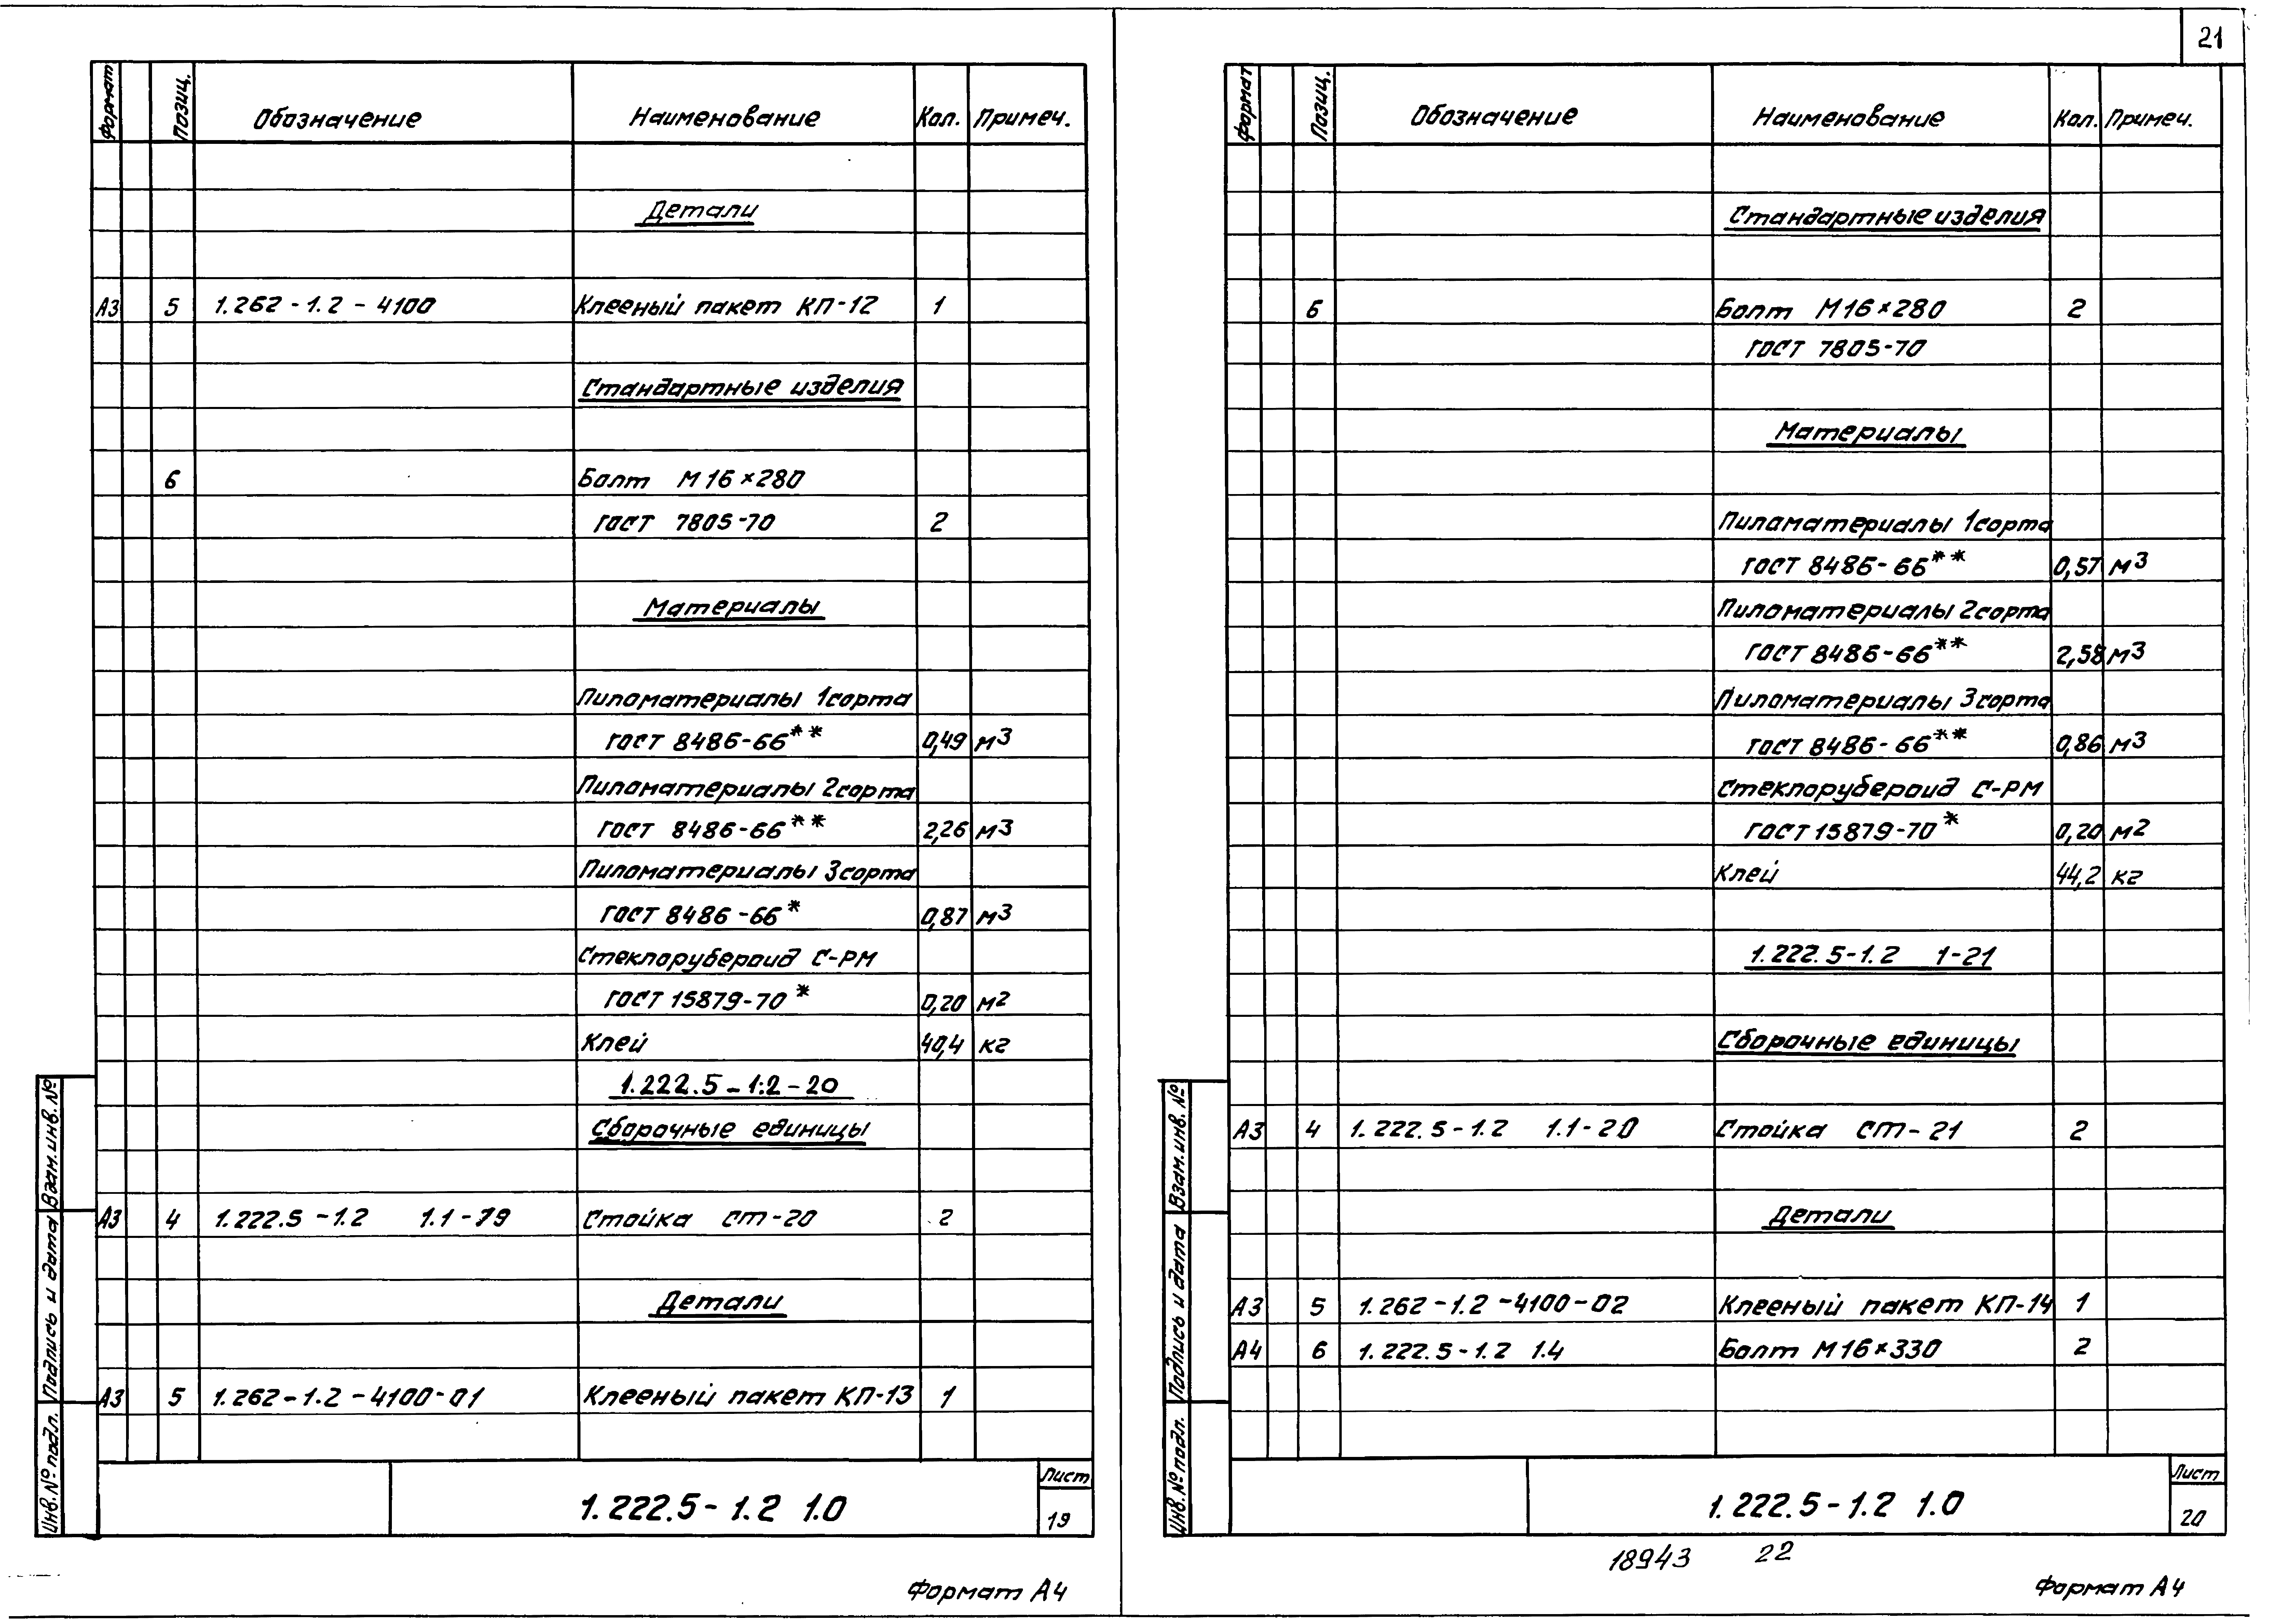 21
Формат Позиц. Обозначение Наименование Кол. Примеч.
Детали
А3 5 1.262-1.2-4100 Клееный пакет КП-12 1
Стандартные изделия
6 Болт М16×280
ГОСТ 7805-70 2
Материалы
Пиломатериалы 1 сорта
ГОСТ 8486-66** 0,49 м3
Пиломатериалы 2 сорта
ГОСТ 8486-66** 2,26 м3
Пиломатериалы 3 сорта
ГОСТ 8486-66* 0,87 м3
Стеклорубероид С-РМ
ГОСТ 15879-70* 0,20 м2
Клей 40,4 кг
1.222.5-1.2-20
Сборочные единицы
А3 4 1.222.5-1.2 1.1-19 Стойка СТ-20 2
Детали
А3 5 1.262-1.2-4100-01 Клееный пакет КП-13 1
Инв. № подл. Подпись и дата Взам. инв. №
1.222.5-1.2 1.0
Лист
19
Формат А4
Формат Позиц. Обозначение Наименование Кол. Примеч.
Стандартные изделия
6 Болт М16×280 2
ГОСТ 7805-70
Материалы
Пиломатериалы 1 сорта
ГОСТ 8486-66** 0,57 м3
Пиломатериалы 2 сорта
ГОСТ 8486-66** 2,58 м3
Пиломатериалы 3 сорта
ГОСТ 8486-66** 0,86 м3
Стеклорубероид С-РМ
ГОСТ 15879-70* 0,20 м2
Клей 44,2 кг
1.222.5-1.2 1-21
Сборочные единицы
А3 4 1.222.5-1.2 1.1-20 Стойка СТ-21 2
Детали
А3 5 1.262-1.2-4100-02 Клееный пакет КП-14 1
А4 6 1.222.5-1.2 1.4 Болт М16×330 2
Инв. № подл. Подпись и дата Взам. инв. №
1.222.5-1.2 1.0
Лист
20
18943 22
Формат А4